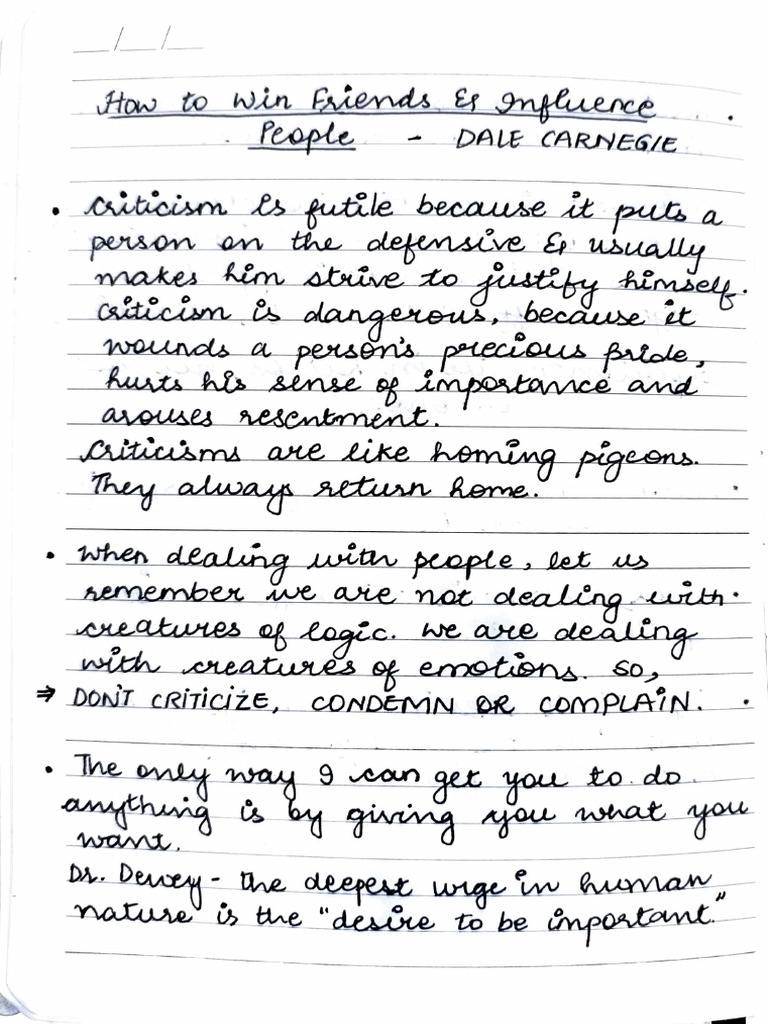 __/__/__
How to Win Friends & Influence
People - DALE CARNEGIE
• Criticism is futile because it puts a
person on the defensive & usually
makes him strive to justify himself.
Criticism is dangerous, because it
wounds a person's precious pride,
hurts his sense of importance and
arouses resentment.
Criticisms are like homing pigeons.
They always return home.
• When dealing with people, let us
remember we are not dealing with
creatures of logic. We are dealing
with creatures of emotions. So,
⇒ DON'T CRITICIZE, CONDEMN OR COMPLAIN.
• The only way I can get you to do
anything is by giving you what you
want.
Dr. Dewey - the deepest urge in human
nature is the "desire to be important."